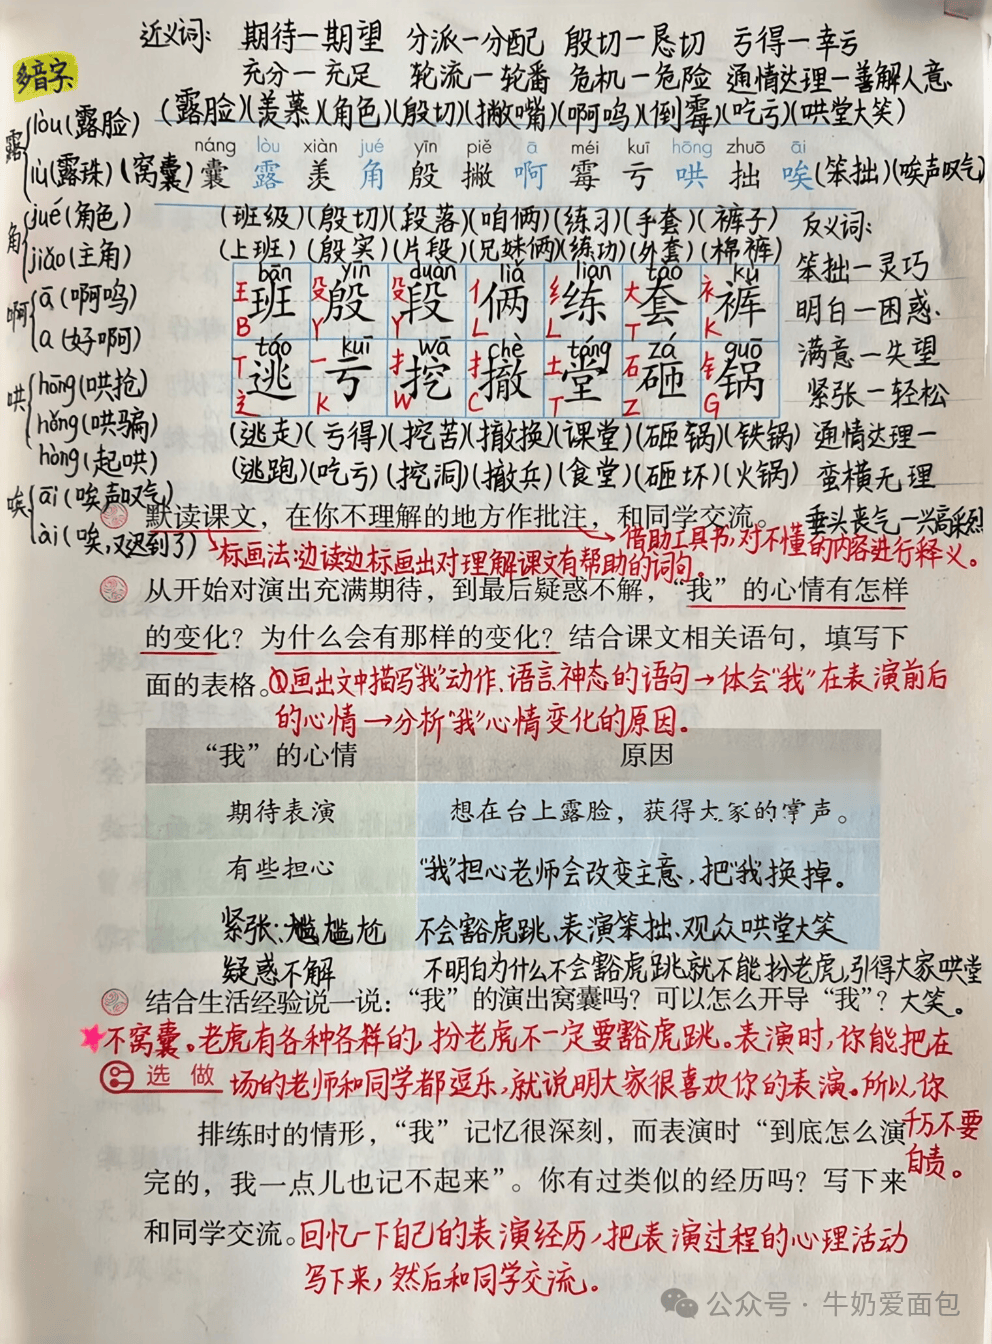 近义词: 期待一期望 分派一分配 殷切一恳切 亏得一幸亏
充分一充足 轮流一轮番 危机一危险 通情达理一善解人意
多音字
(露脸)(羡慕)(角色)(殷切)(撇嘴)(啊呜)(倒霉)(吃亏)(哄堂大笑)
露 lòu(露脸)
lù(露珠)
náng lòu xiàn jué yīn piě ā méi kuī hōng zhuō āi
(窝囊) 囊 露 羡 角 殷 撇 啊 霉 亏 哄 拙 唉 (笨拙)(唉声叹气)
角 jué(角色)
jiǎo(主角)
啊 ā(啊呜)
a(好啊)
哄 hōng(哄抢)
hǒng(哄骗)
hòng(起哄)
唉 āi(唉声叹气)
ài(唉,又迟到了)
(班级)(殷切)(段落)(咱俩)(练习)(手套)(裤子)
(上班)(殷实)(片段)(兄妹俩)(练功)(外套)(棉裤)
bān yīn duàn liǎ liàn tào kù
王 班 B 殳 殷 Y 殳 段 Y 亻 俩 L 纟 练 L 大 套 T 衤 裤 K
táo kuī wā chè táng zá guō
T 逃 辶 一 亏 K 扌 挖 W 扌 撤 C 土 堂 T 石 砸 Z 钅 锅 G
(逃走)(亏得)(挖苦)(撤换)(课堂)(砸锅)(铁锅)
(逃跑)(吃亏)(挖洞)(撤兵)(食堂)(砸坏)(火锅)
反义词:
笨拙一灵巧
明白一困惑
满意一失望
紧张一轻松
通情达理一
蛮横无理
垂头丧气一兴高采烈
默读课文，在你不理解的地方作批注，和同学交流。
借助工具书,对不懂的内容进行释义。
标画法:边读边标画出对理解课文有帮助的词句。
从开始对演出充满期待，到最后疑惑不解，“我”的心情有怎样
的变化？为什么会有那样的变化？结合课文相关语句，填写下
面的表格。①画出文中描写“我”动作、语言、神态的语句→体会“我”在表演前后
的心情→分析“我”心情变化的原因。
“我”的心情 原因
期待表演 想在台上露脸，获得大家的掌声。
有些担心 “我”担心老师会改变主意,把“我”换掉。
紧张、尴尬 不会豁虎跳、表演笨拙、观众哄堂大笑
疑惑不解 不明白为什么不会豁虎跳就不能扮老虎,引得大家哄堂
大笑。
结合生活经验说一说：“我”的演出窝囊吗？可以怎么开导“我”？
★不窝囊。老虎有各种各样的,扮老虎不一定要豁虎跳。表演时,你能把在
场的老师和同学都逗乐,就说明大家很喜欢你的表演。所以,你
千万不要
自责。
选做
排练时的情形，“我”记忆很深刻，而表演时“到底怎么演
完的，我一点儿也记不起来”。你有过类似的经历吗？写下来
和同学交流。回忆一下自己的表演经历,把表演过程的心理活动
写下来,然后和同学交流。
公众号·牛奶爱面包